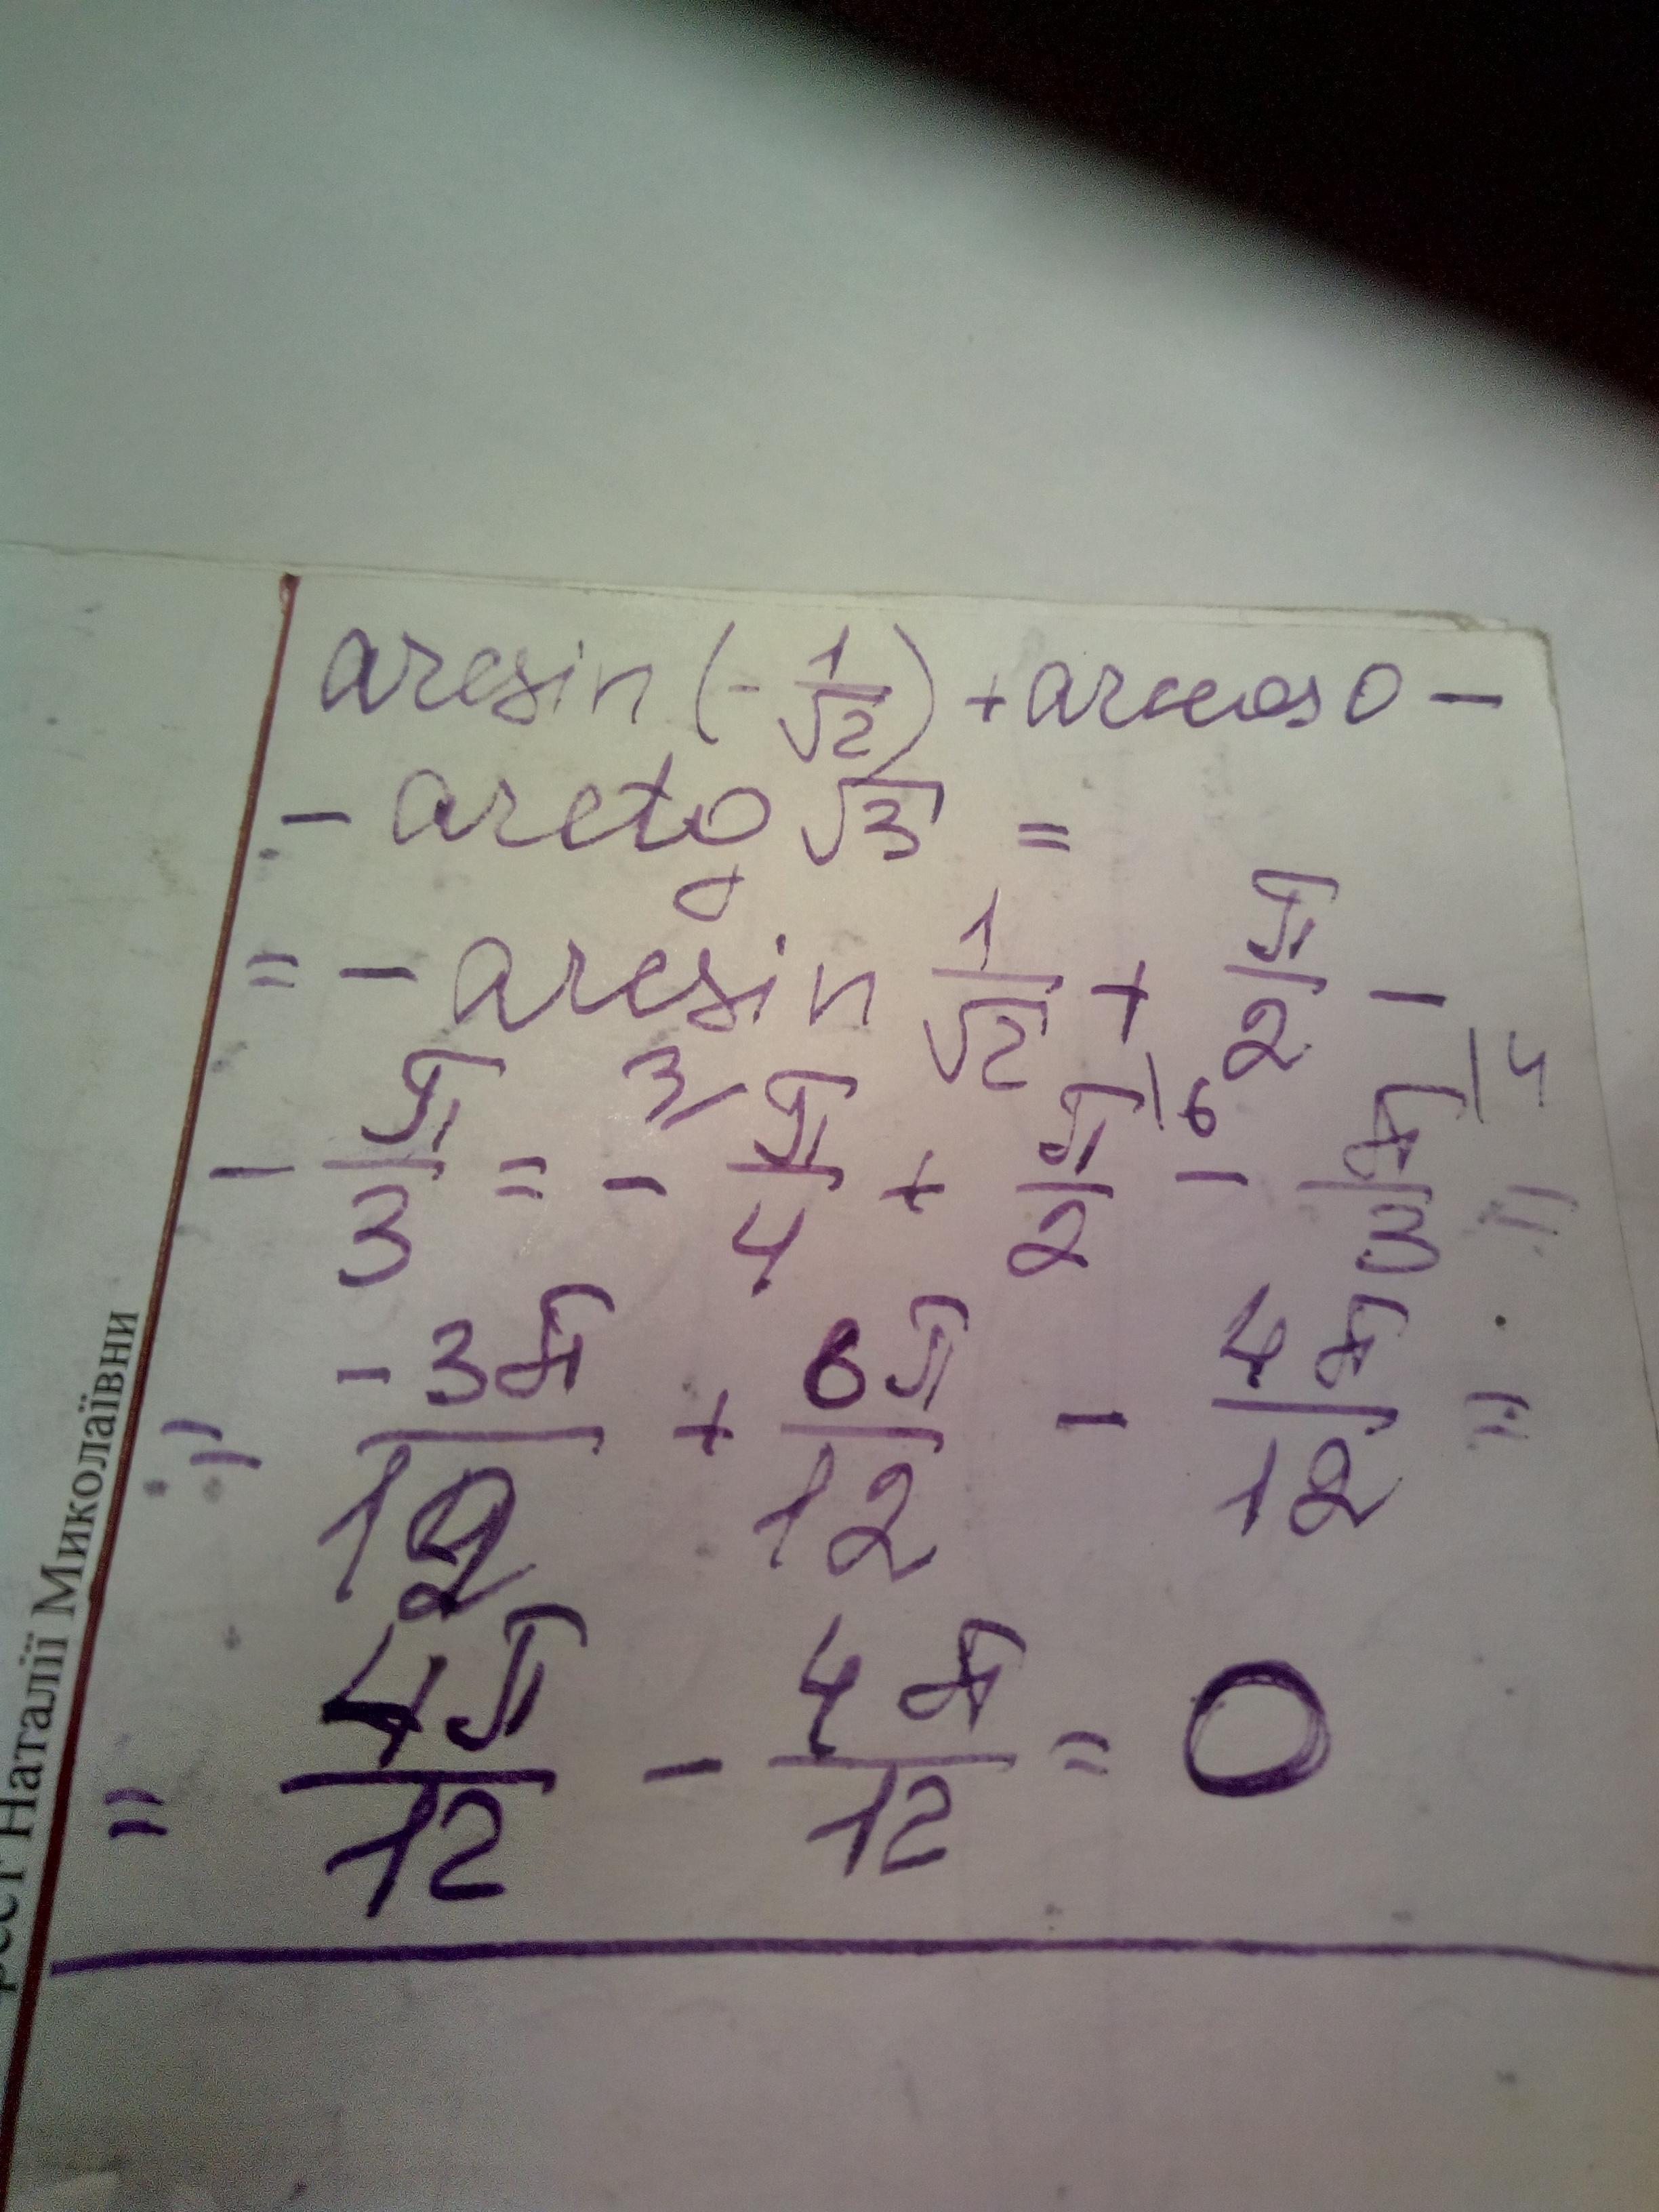 arcsin(-1/√2) + arccos 0 -
- arctg √3 =
= - arcsin 1/√2 + π/2 -
- π/3 = - ³⁄ π/4 + π/2 |6 - π/3 |4 =
= -3π/12 + 6π/12 - 4π/12 =
= 4π/12 - 4π/12 = 0
Наталії Миколаївни